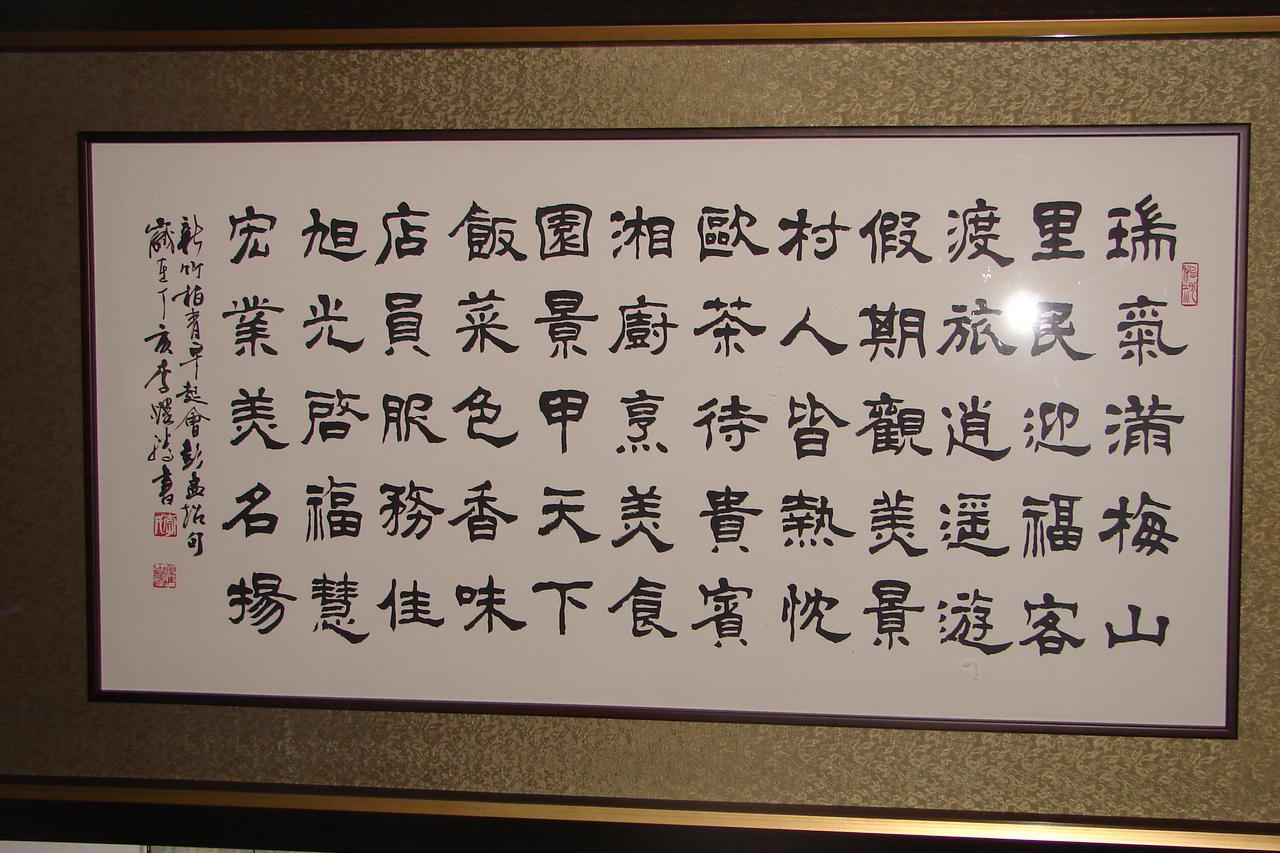 瑞氣滿梅山
里民迎福客
渡旅逍遥遊
假期觀美景
村人皆熱忱
歐茶待貴賓
湘廚烹美食
園景甲天下
飯菜色香味
店員服務佳
旭光啓福慧
宏業美名揚
新竹柏青早起會彭孟紹句
歲至丁亥書